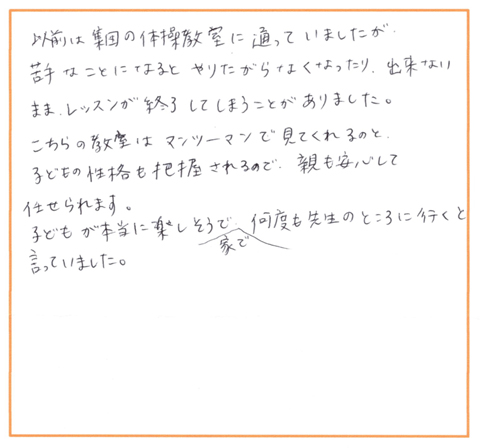 以前は集団の体操教室に通っていましたが、
苦手なことになると やりたがらなくなったり、出来ない
まま、レッスンが終了してしまうことがありました。
こちらの教室は マンツーマンで見てくれるのと、
子どもの性格も把握されるので、親も安心して
任せられます。
子どもが本当に楽しそうで、何度も先生のところに行くと
家で
言っていました。